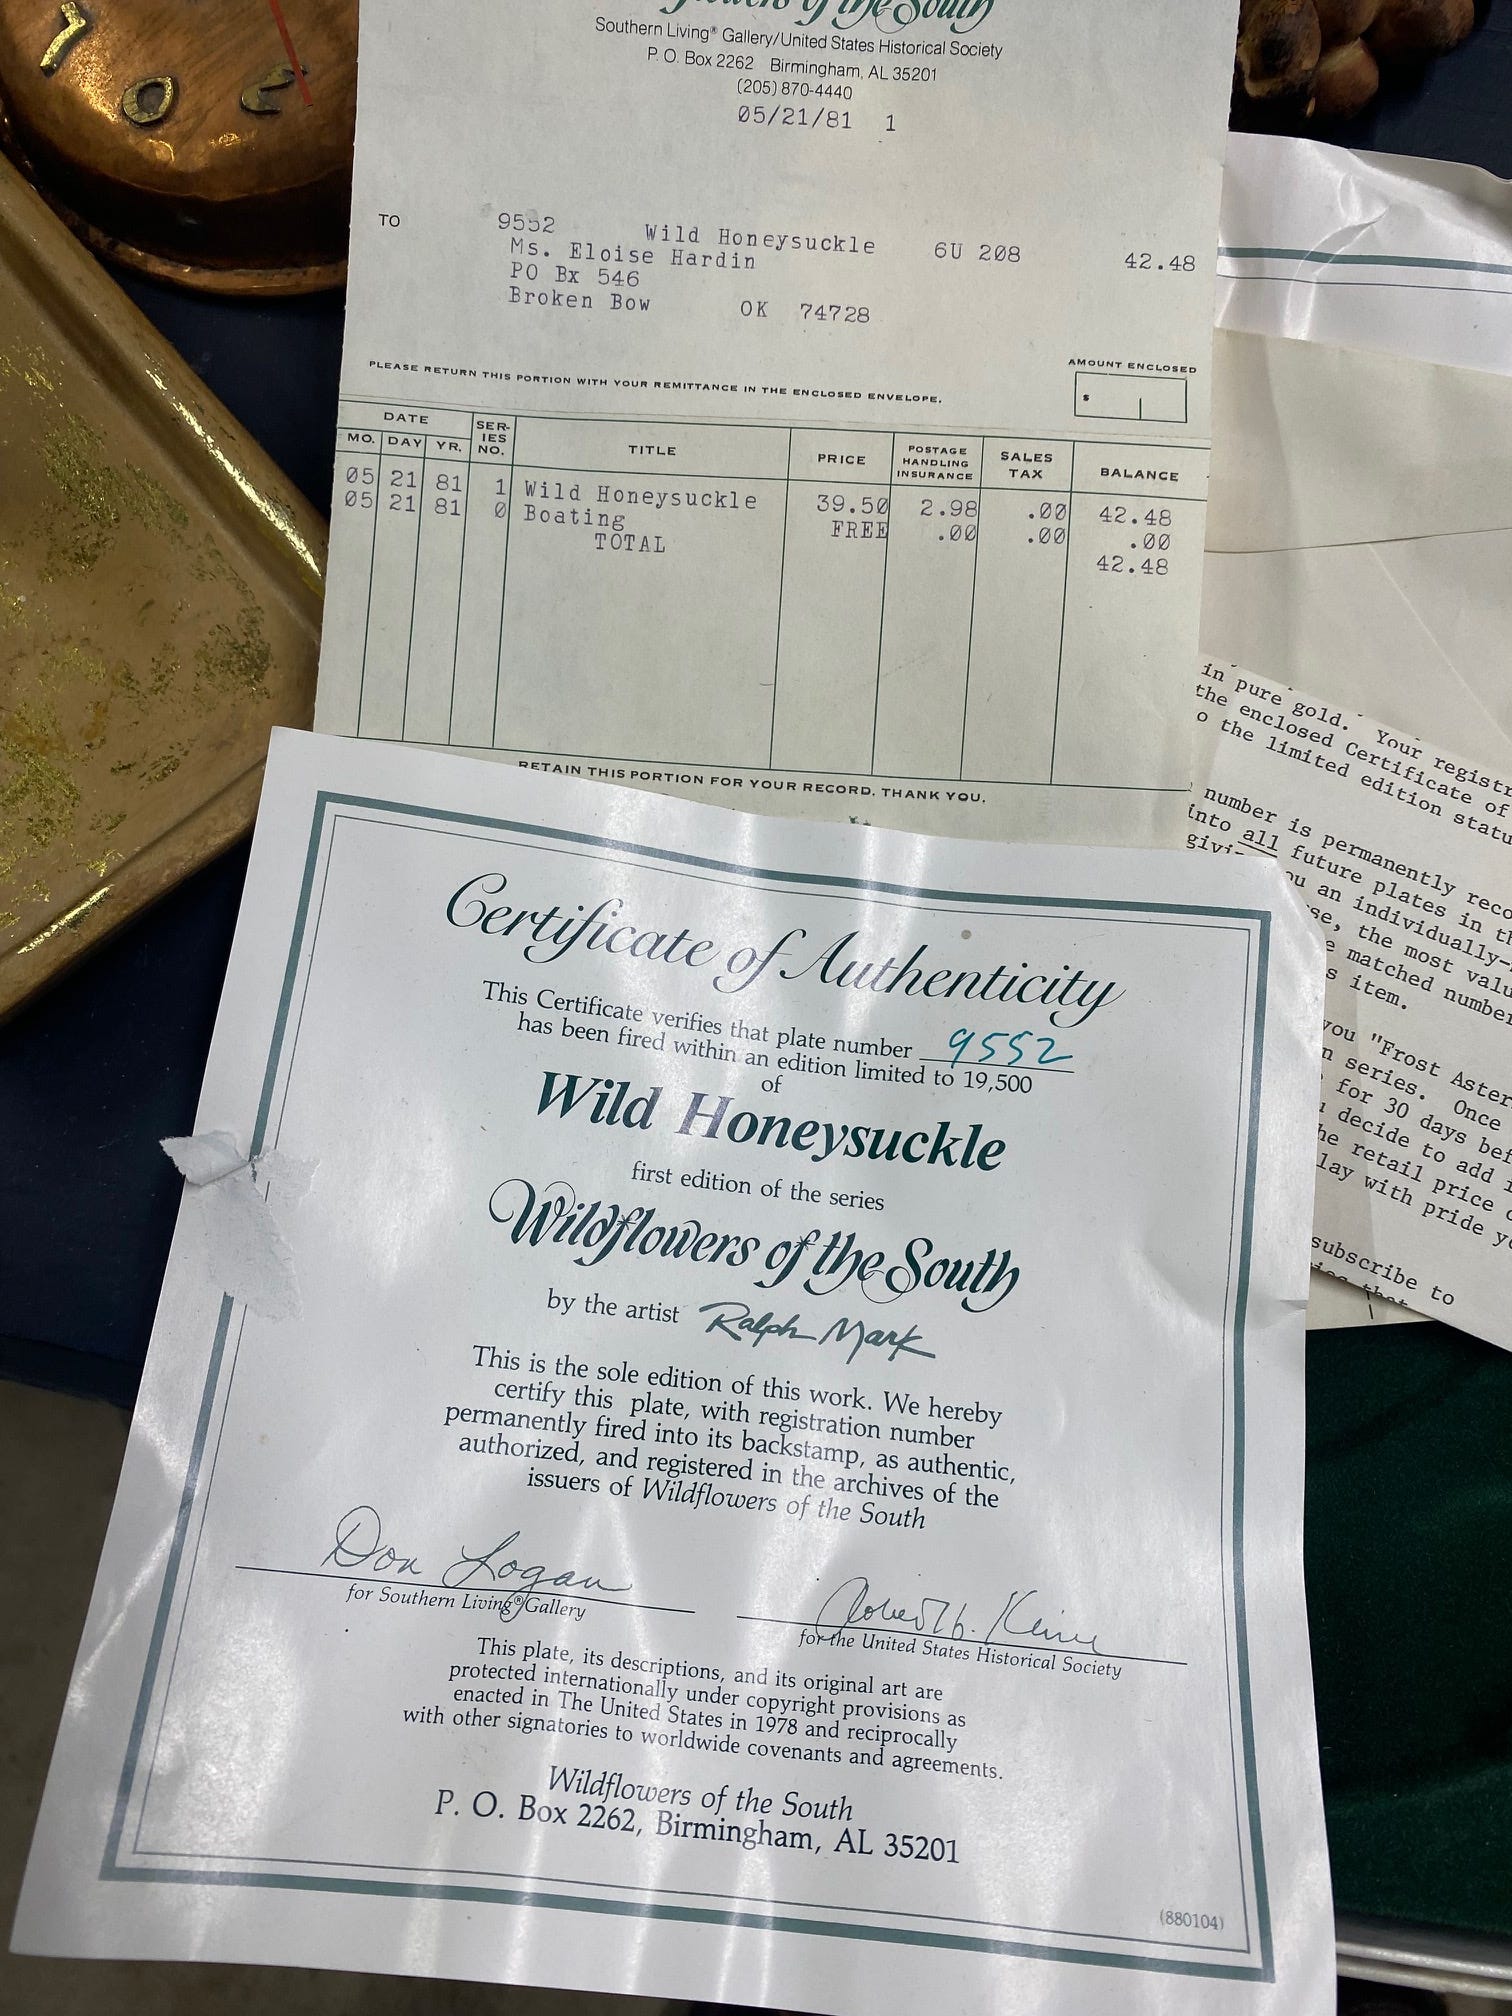 Flowers of the South
Southern Living® Gallery/United States Historical Society
P. O. Box 2262 Birmingham, AL 35201
(205) 870-4440
05/21/81 1
TO
9552 Wild Honeysuckle 6U 208 42.48
Ms. Eloise Hardin
PO Bx 546
Broken Bow OK 74728
PLEASE RETURN THIS PORTION WITH YOUR REMITTANCE IN THE ENCLOSED ENVELOPE.
AMOUNT ENCLOSED
$
DATE
MO. DAY YR. SERIES NO. TITLE PRICE POSTAGE HANDLING INSURANCE SALES TAX BALANCE
05 21 81 1 Wild Honeysuckle 39.50 2.98 .00 42.48
05 21 81 0 Boating FREE .00 .00 .00
TOTAL 42.48
RETAIN THIS PORTION FOR YOUR RECORD. THANK YOU.
Certificate of Authenticity
This Certificate verifies that plate number 9552
has been fired within an edition limited to 19,500
of
Wild Honeysuckle
first edition of the series
Wildflowers of the South
by the artist Ralph Mark
This is the sole edition of this work. We hereby
certify this plate, with registration number
permanently fired into its backstamp, as authentic,
authorized, and registered in the archives of the
issuers of Wildflowers of the South
Don Logan
for Southern Living® Gallery
for the United States Historical Society
This plate, its descriptions, and its original art are
protected internationally under copyright provisions as
enacted in The United States in 1978 and reciprocally
with other signatories to worldwide covenants and agreements.
Wildflowers of the South
P. O. Box 2262, Birmingham, AL 35201
(880104)
in pure gold. Your
the enclosed Certificate of
the limited edition
number is permanently
into all future plates in
an individually-
the most
matched
item.
you "Frost
series. Once
for 30 days
decide to add
retail price
with pride
subscribe to
7
0